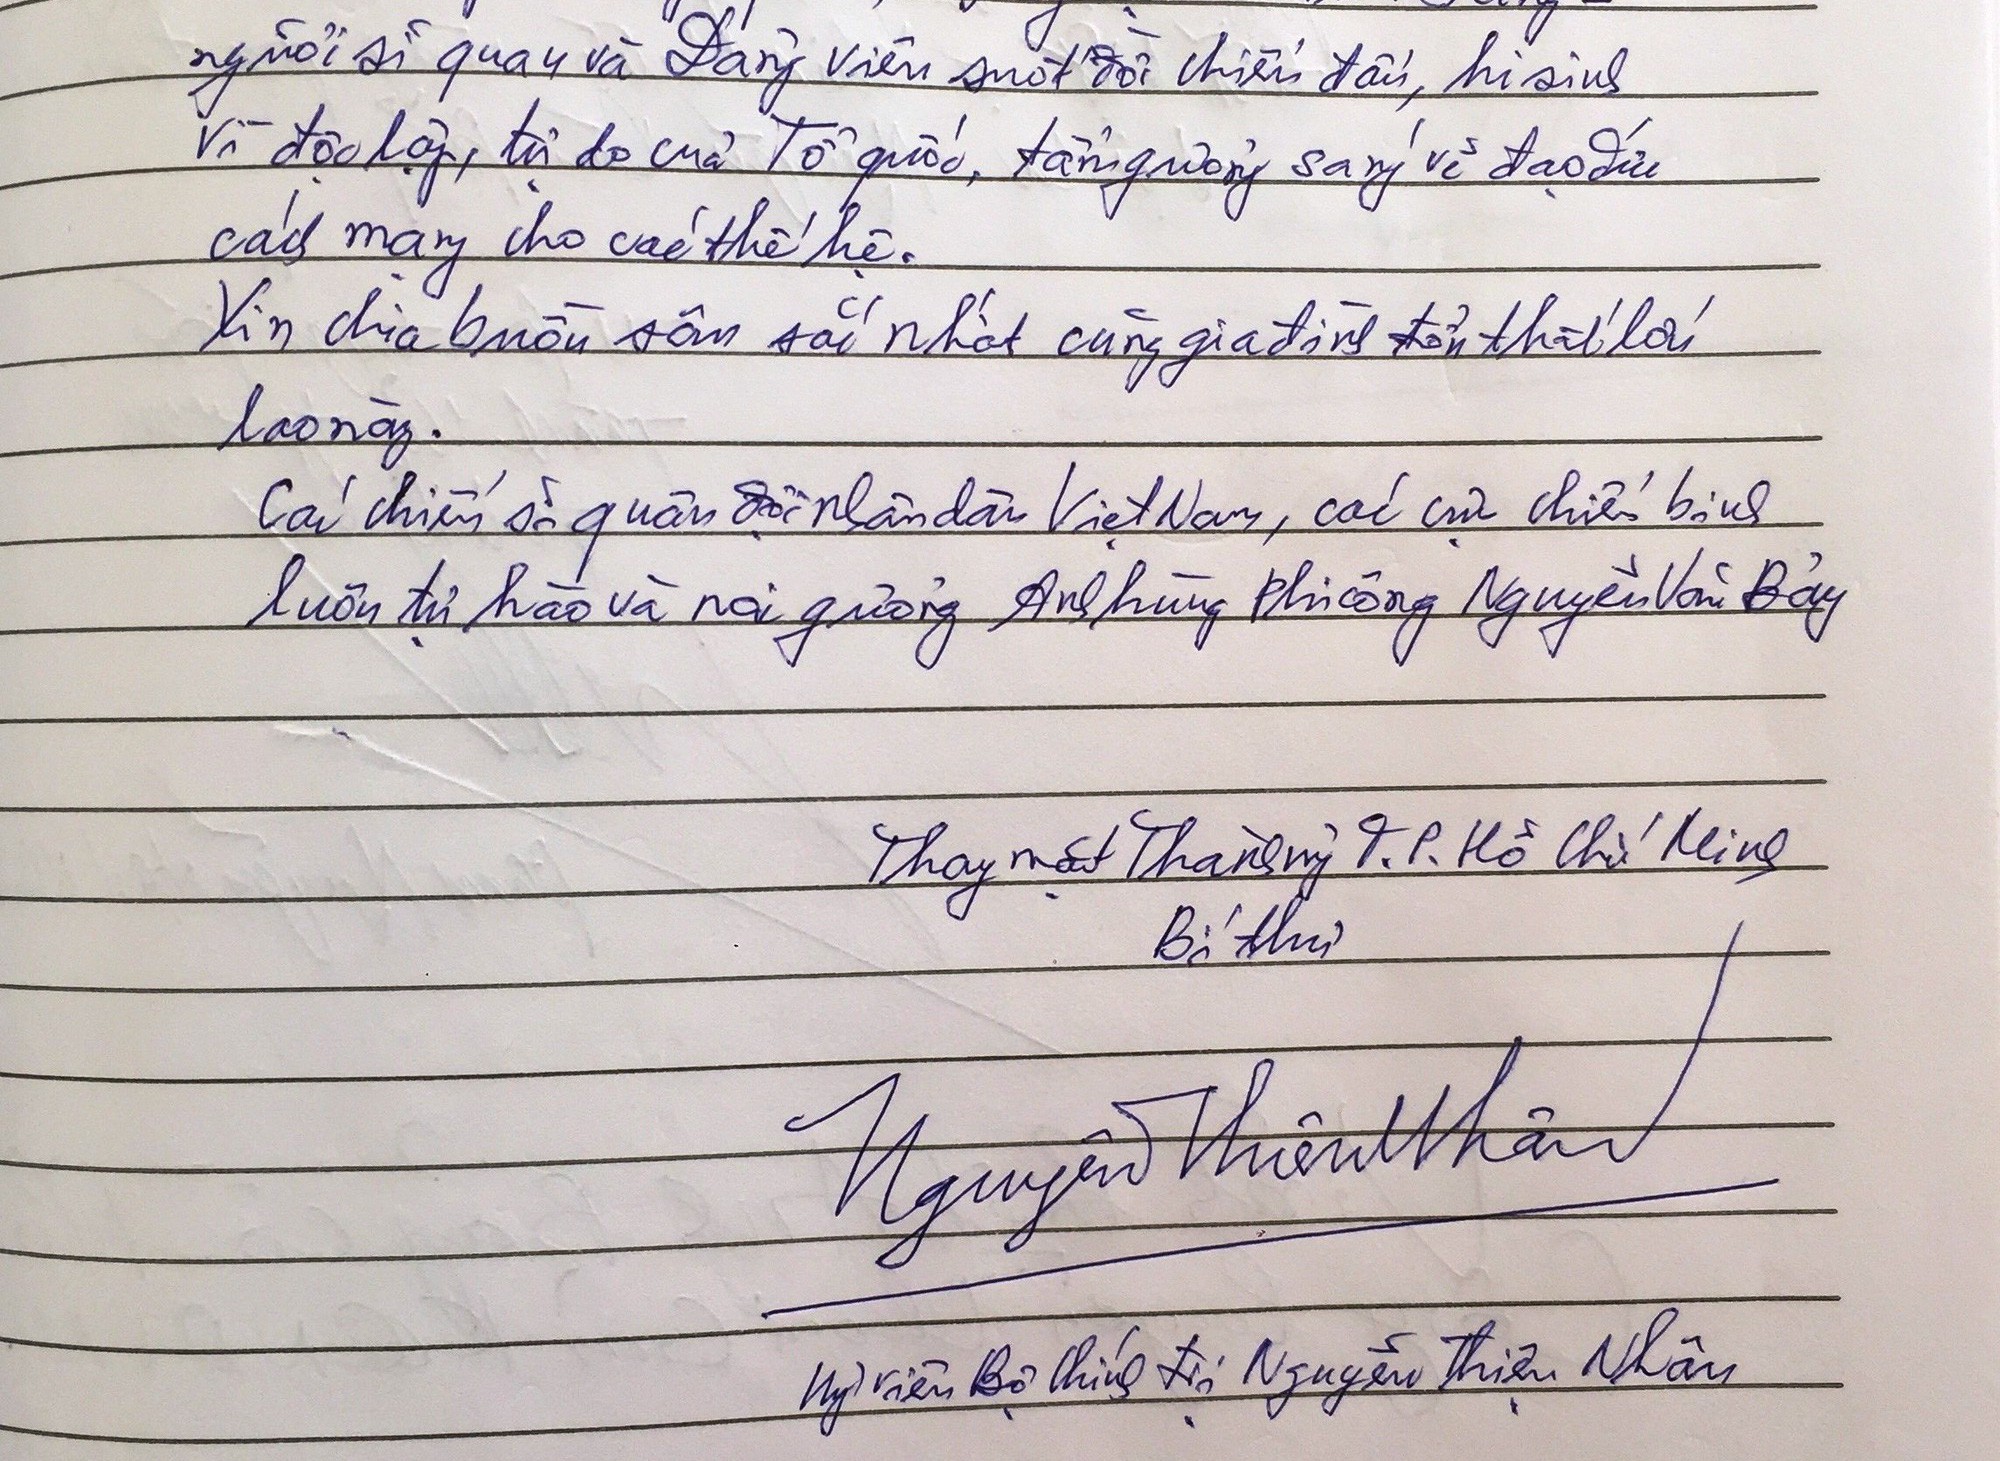 người sĩ quan và Đảng viên suốt đời chiến đấu, hi sinh
vì độc lập, tự do của Tổ quốc, tấm gương sáng về đạo đức
cách mạng cho các thế hệ.
Xin chia buồn sâu sắc nhất cùng gia đình tổn thất lớn
lao này.
Các chiến sĩ quân đội nhân dân Việt Nam, các cựu chiến binh
luôn tự hào và noi gương Anh hùng phi công Nguyễn Văn Bảy
Thay mặt Thành ủy T.P. Hồ Chí Minh
Bí thư
Nguyễn Thiện Nhân
Uỷ viên Bộ Chính trị Nguyễn Thiện Nhân